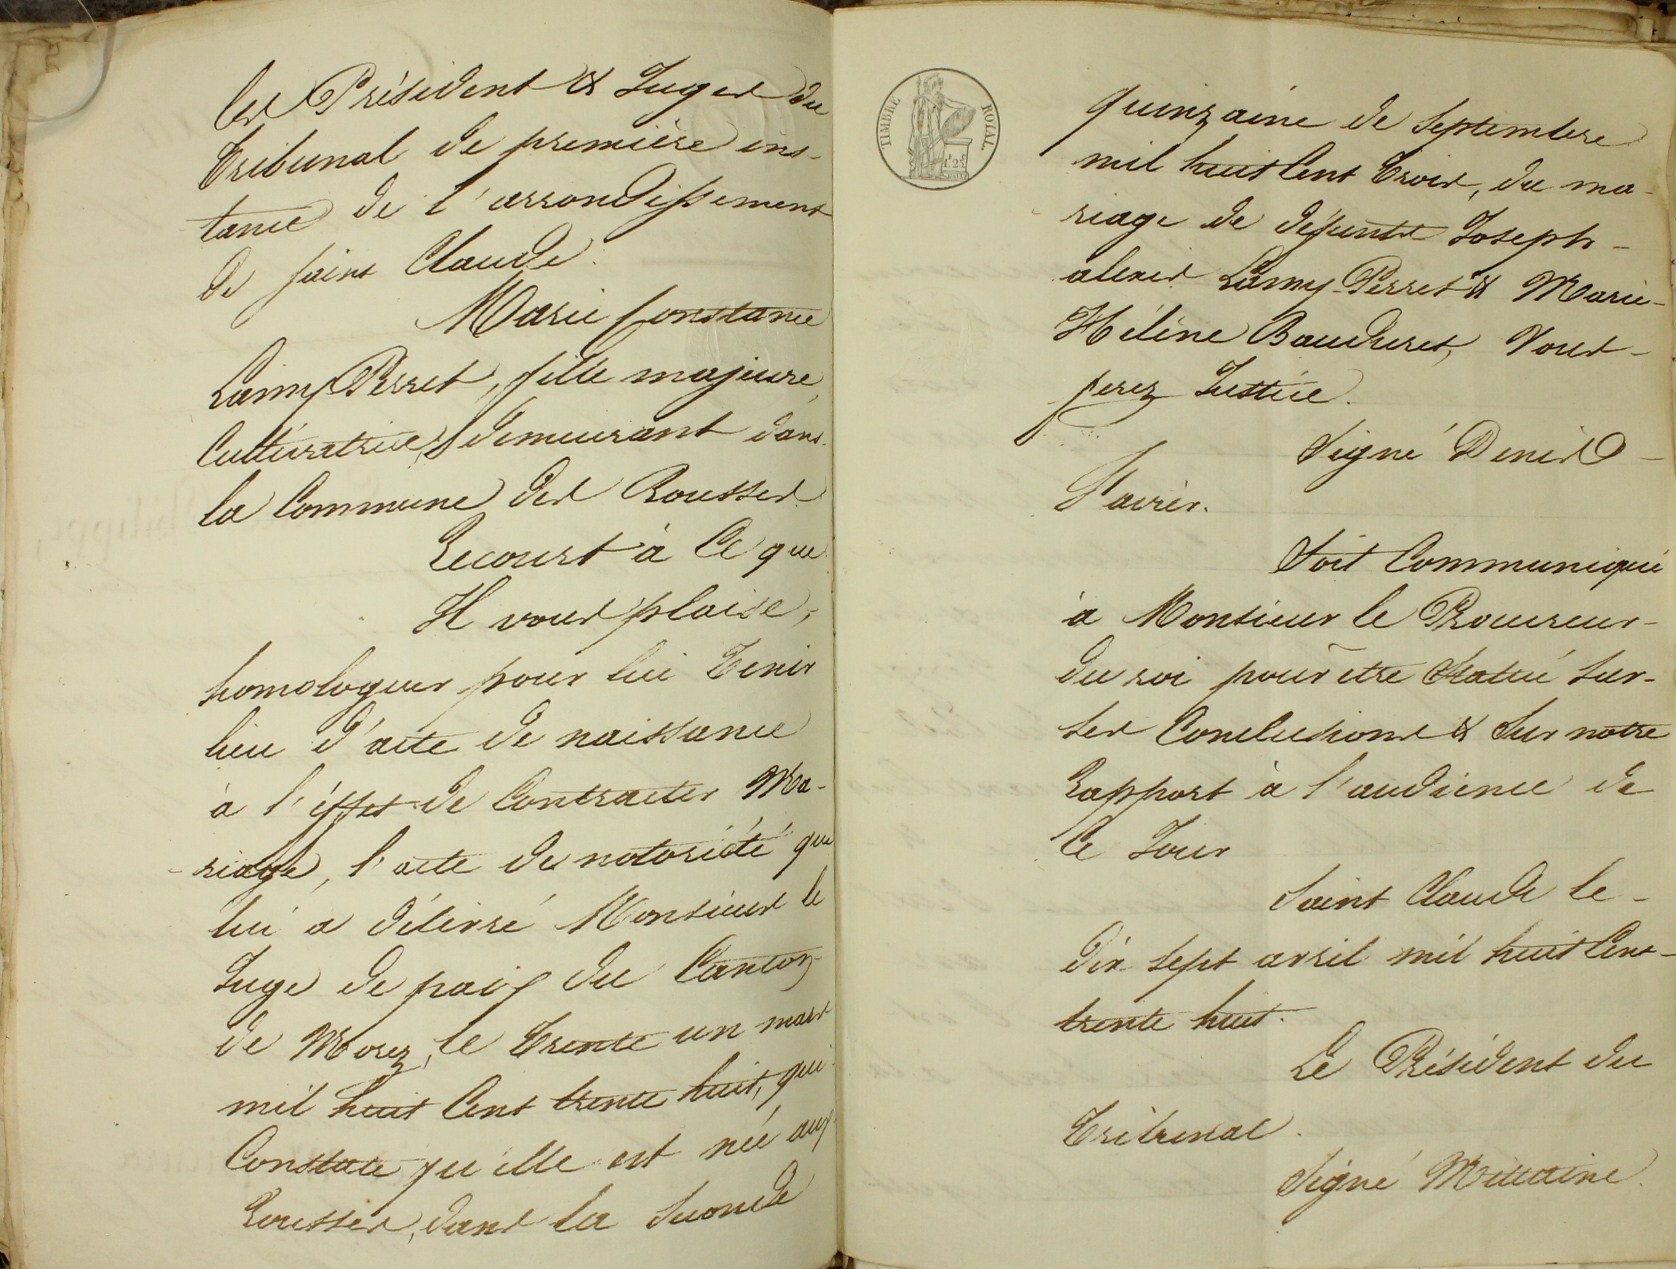 les Président & Juges du
Tribunal de première ins-
tance de l'arrondissement
de saint Claude.
Marie Constance
Lamy-Perret, fille majeure,
Cultivatrice, demeurant dans
la Commune des Rousses.
Recourt à Ce que
Il vous plaise,
homologuer pour lui Tenir
lieu d'acte de naissance
à l'éffet de Contracter Ma-
-riage, l'acte de notoriété que
lui a délivré Monsieur le
Juge de paix du Canton
de Morez, le Trente un mars
mil huit Cent trente huit, qui
Constate qu'elle est née aux
Rousses, dans la Seconde
TIMBRE ROYAL
1f 25c
quinzaine de Septembre
mil huit Cent Trois, du ma-
riage de défunts Joseph-
alexis Lamy-Perret & Marie-
Hélène Bauderet, Vous-
ferez Justice.
Signé Denis
Soit Communiqué
à Monsieur le Procureur-
du roi pour être Statué Sur-
Ses Conclusions & Sur notre
Rapport à l'audience de
Ce Jour
Saint Claude le-
dix Sept avril mil huit Cent-
trente huit.
Le Président du
Tribunal.
Signé